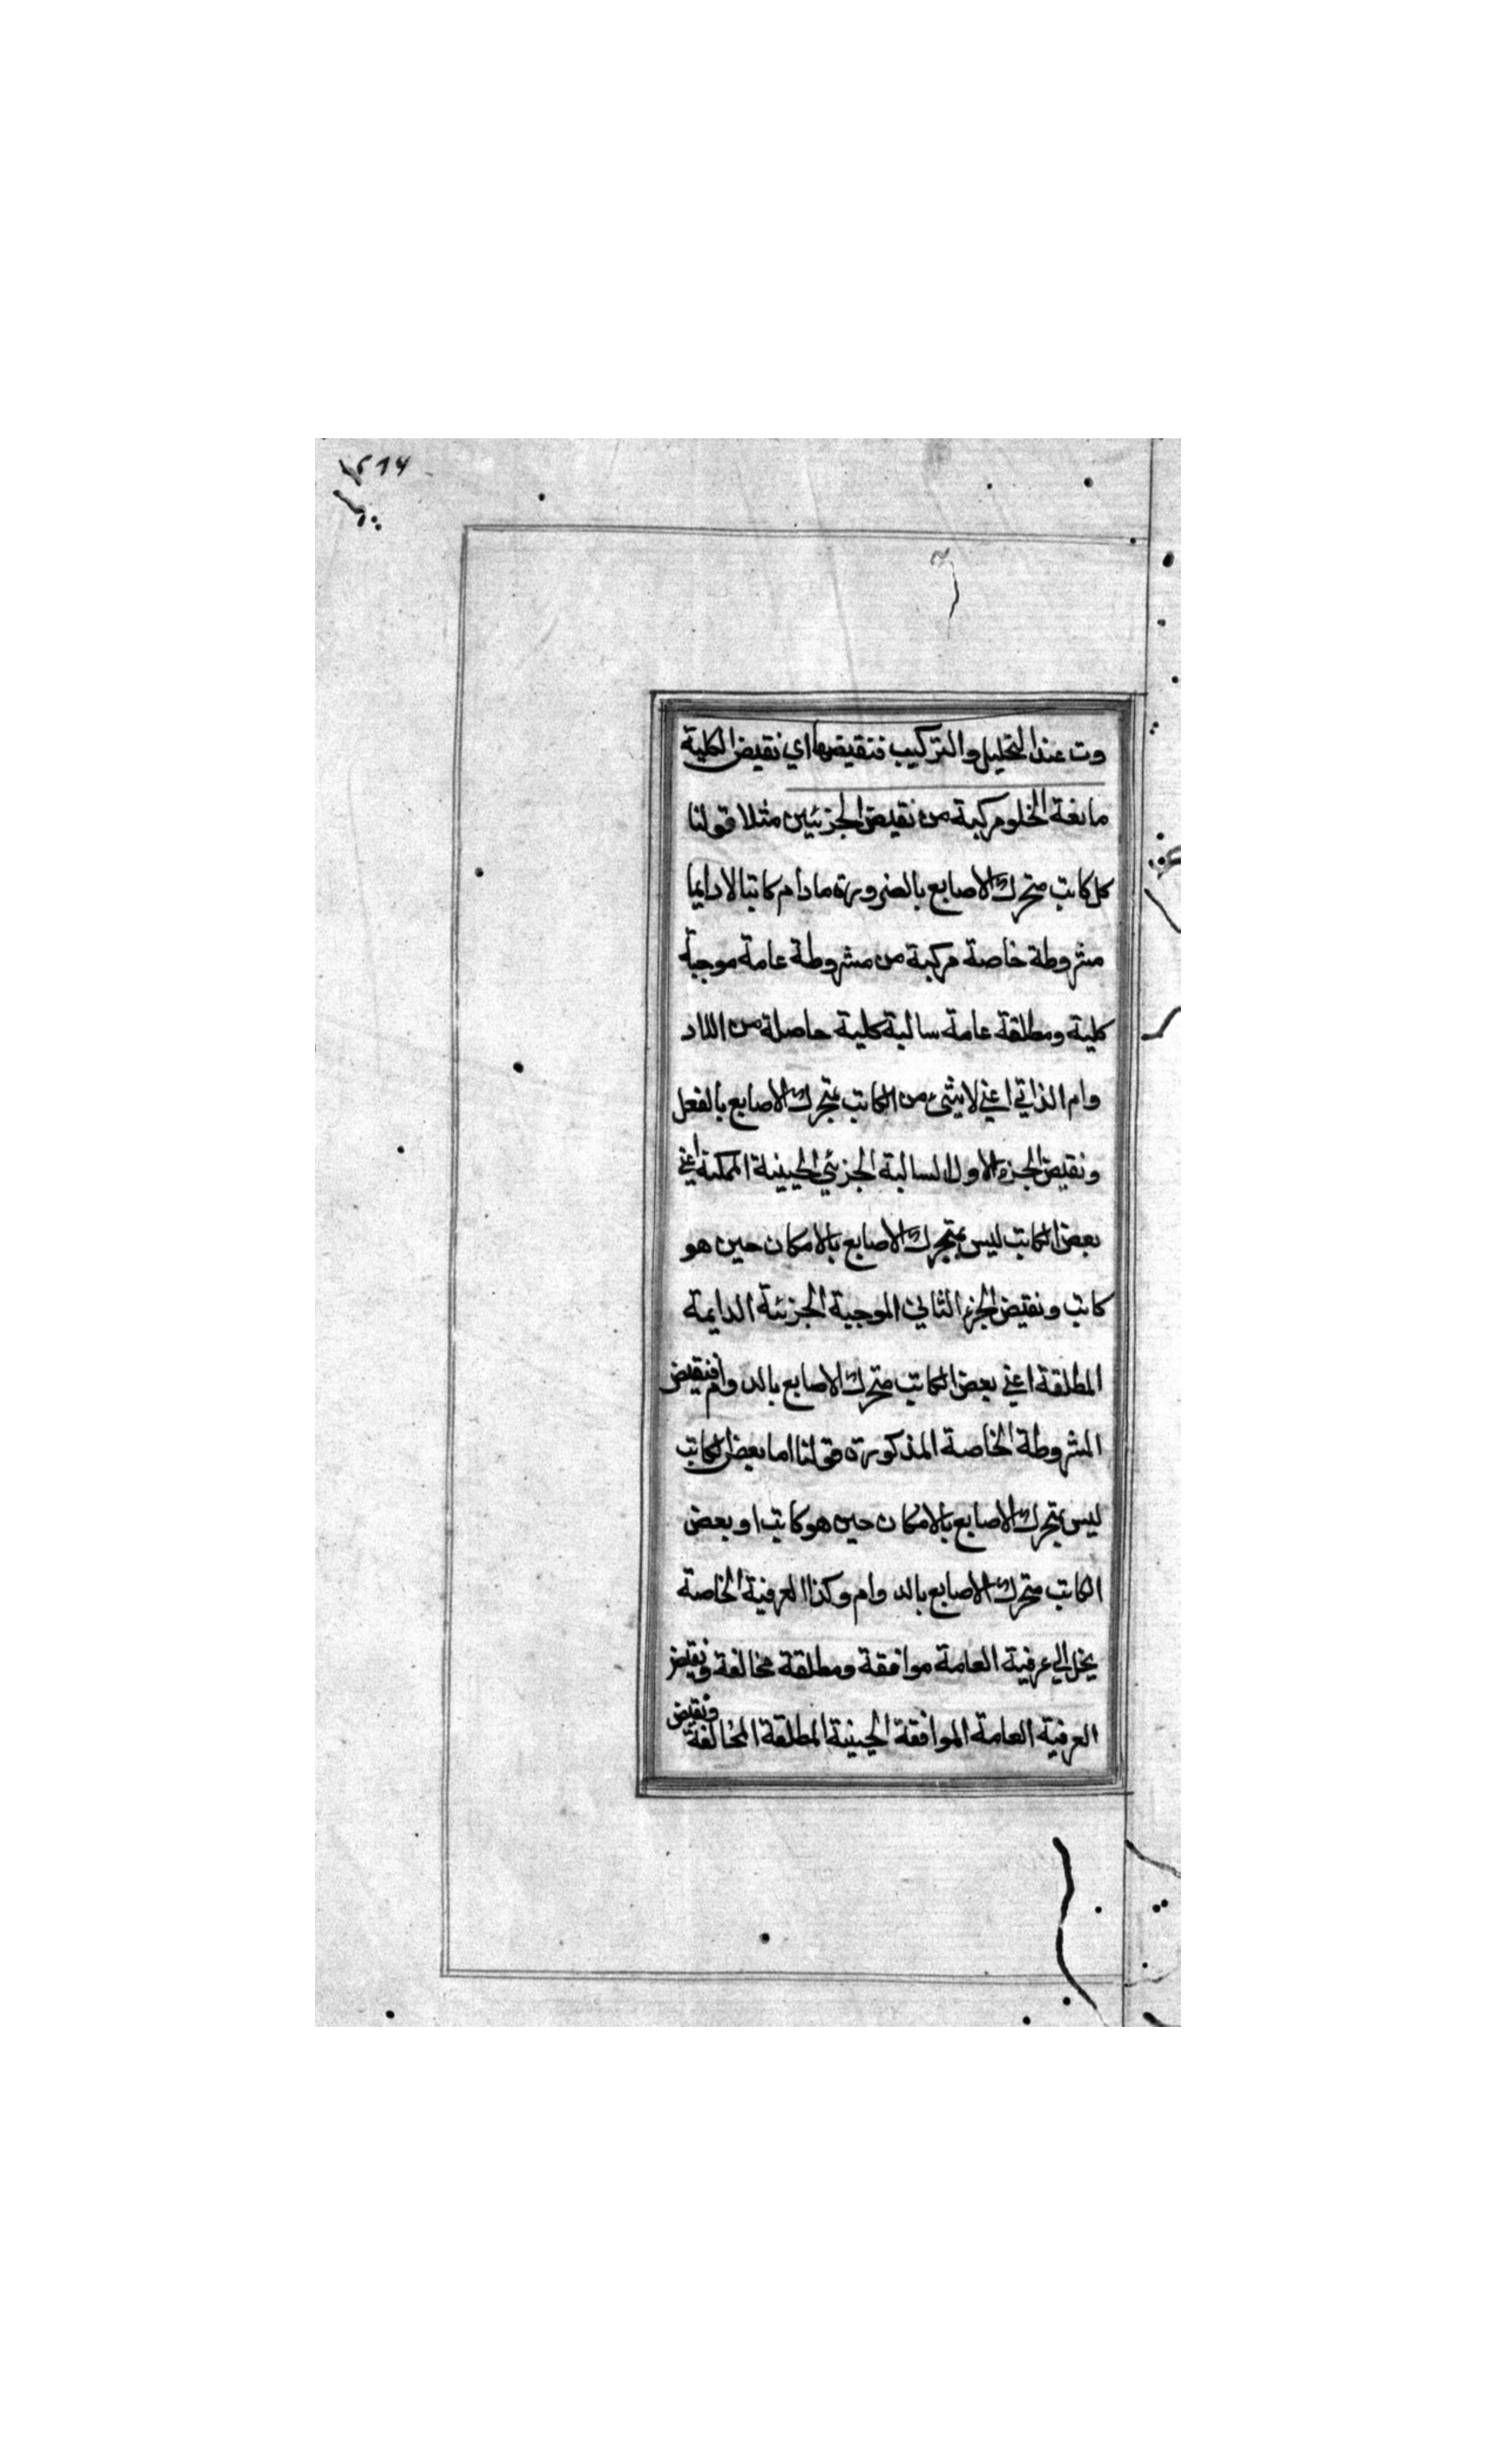 وت عند التحليل والتركيب فنقيضها اي نقيض الكلية
مانعة الخلو مركبة من نقيض الجزئيين مثلا قولنا
كل كاتب متحرك الاصابع بالضرورة مادام كاتبا لا دايما
مشروطة خاصة مركبة من مشروطة عامة موجبة
كلية ومطلقة عامة سالبة كلية حاصلة من اللاد
وام الذاتي اعني لا شيء من الكاتب بمتحرك الاصابع بالفعل
ونقيض الجزء الاول السالبة الجزئي الحينية الممكنة اعني
بعض الكاتب ليس بمتحرك الاصابع بالامكان حين هو
كاتب ونقيض الجزء الثاني الموجبة الجزئية الدايمة
المطلقة اعني بعض الكاتب متحرك الاصابع بالدوام فنقيض
المشروطة الخاصة المذكورة قولنا اما بعض الكاتب
ليس بمتحرك الاصابع بالامكان حين هو كاتب او بعض
الكاتب متحرك الاصابع بالدوام وكذا العرفية الخاصة
يحل الي عرفية العامة موافقة ومطلقة مخالفة ونقيض
العرفية العامة الموافقة الحينية المطلقة المخالفة ونقيض